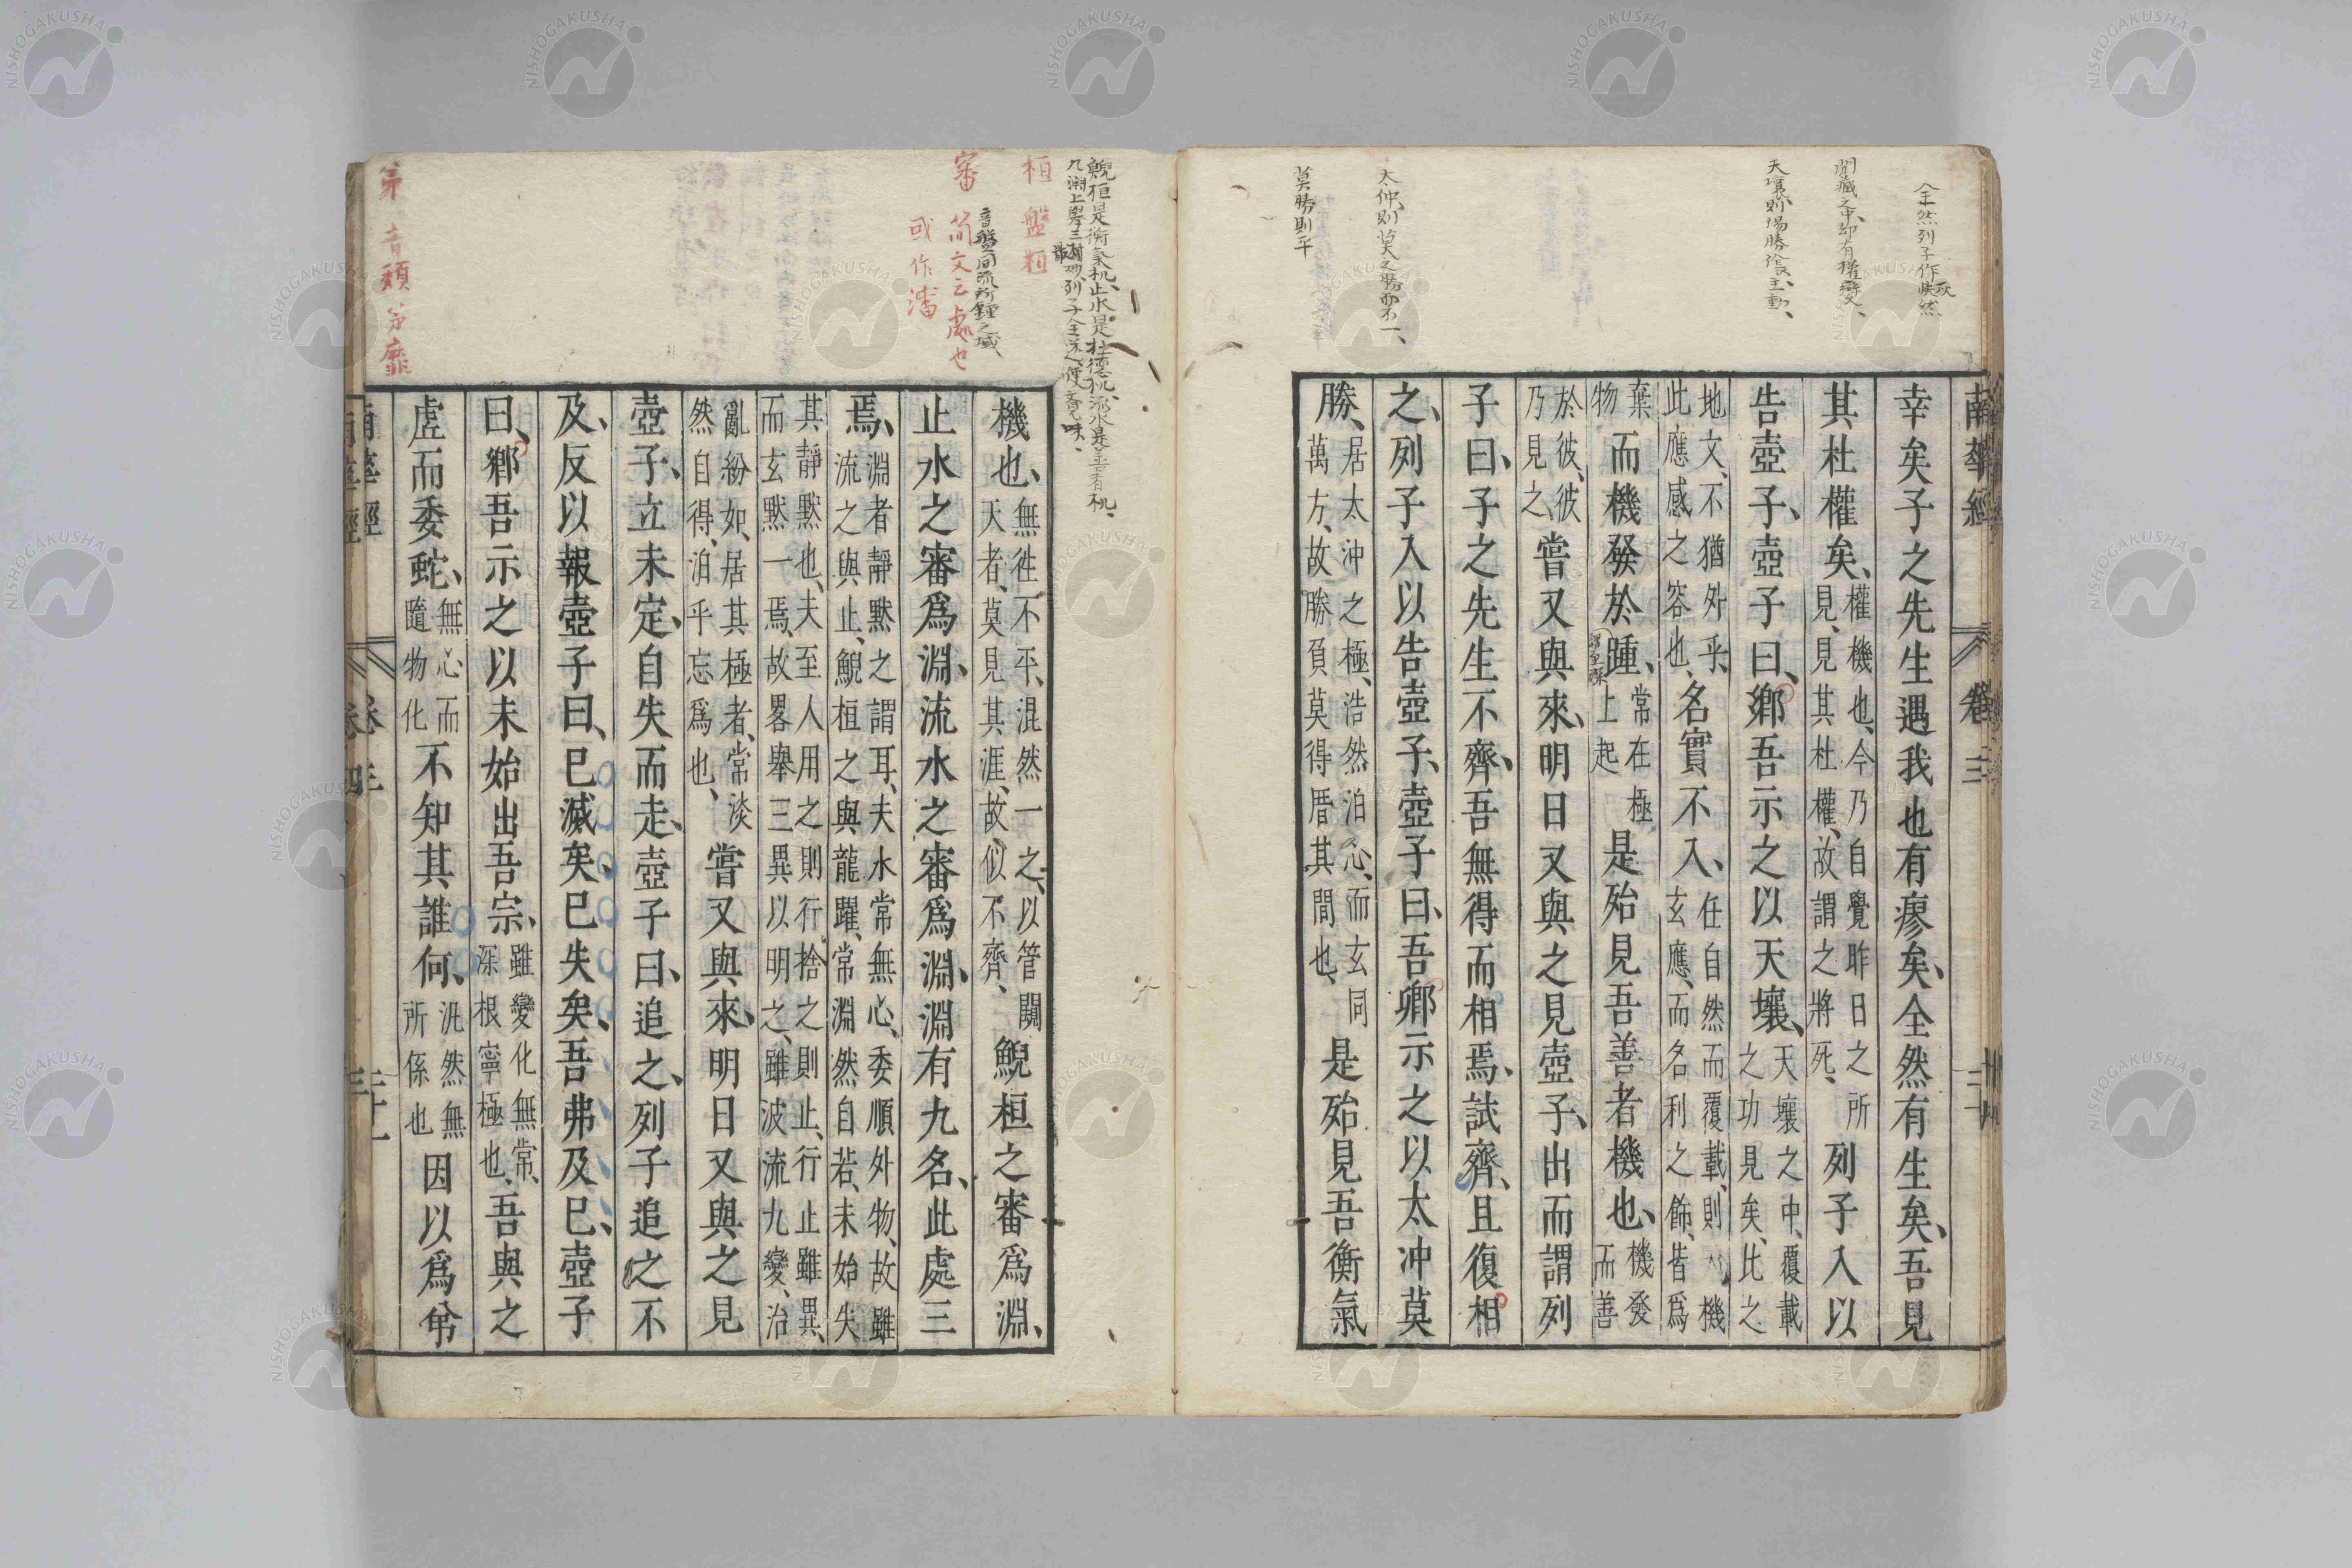 南華經 卷三
全然列子作恢然
閉藏之中、却有權變、
天壤、則陽勝陰、主動、
太冲、則莫之勝而不一、
莫勝則平
幸矣子之先生遇我也有瘳矣、全然有生矣、吾見
其杜權矣、權機也、今乃自覺昨日之所見、見其杜權、故謂之將死、列子入以
告壺子、壺子曰、鄉吾示之以天壤、天壤之中、覆載之功見矣、比之
地文、不猶外乎、此應感之容也、名實不入、任自然而覆載、則機玄應、而名利之飾、皆爲
棄物而機發於踵、常在極上起是殆見吾善者機也、機發而善
於彼、彼乃見之嘗又與來、明日又與之見壺子、出而謂列
子曰、子之先生不齊、吾無得而相焉、試齊、且復相
之、列子入以告壺子、壺子曰、吾鄉示之以太冲莫
勝、居太冲之極、浩然泊心、而玄同萬方、故勝負莫得厝其間也、是殆見吾衡氣
鯢桓是衡氣机、止水是杜德机、流水是善者机、
桓 盤桓
審 簡文云處也
或作潘
音盤回流所鍾之域
弟 音頽 弟靡
機也、無往不平、混然一之、以管闚天者、莫見其涯、故似不齊、鯢桓之審爲淵、
止水之審爲淵、流水之審爲淵、淵有九名、此處三
焉、淵者靜默之謂耳、夫水常無心、委順外物、故雖流之與止、鯢桓之與龍躍、常淵然自若、未始失
其靜默也、夫至人用之則行捨之則止、行止雖異、而玄默一焉、故畧舉三異以明之、雖波流九變、治
亂紛如、居其極者、常淡然自得、泊乎忘爲也、嘗又與來、明日又與之見
壺子、立未定、自失而走、壺子曰、追之、列子追之不
及、反以報壺子曰、已滅矣、已失矣、吾弗及已、壺子
曰、鄉吾示之以未始出吾宗、雖變化無常、深根寧極也、吾與之
虛而委蛇、無心而隨物化不知其誰何、汎然無所係也因以爲弟
南華經 卷三 三十一